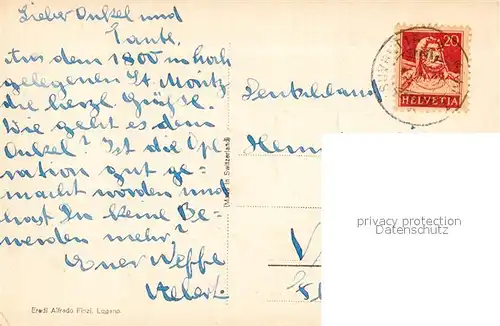 Lieber Onkel und
Tante,
Aus dem 1800 m hoch
gelegenen St. Moritz
die herzl. Grüße.
Wie geht es dem
Onkel? Ist die Ope-
ration gut ge-
macht worden und
hast Du keine Be-
werden mehr?
Euer Neffe
Eredi Alfredo Finzi, Lugano.
(Made in Switzerland)
20
HELVETIA
Deutschland
privacy protection
Datenschutz